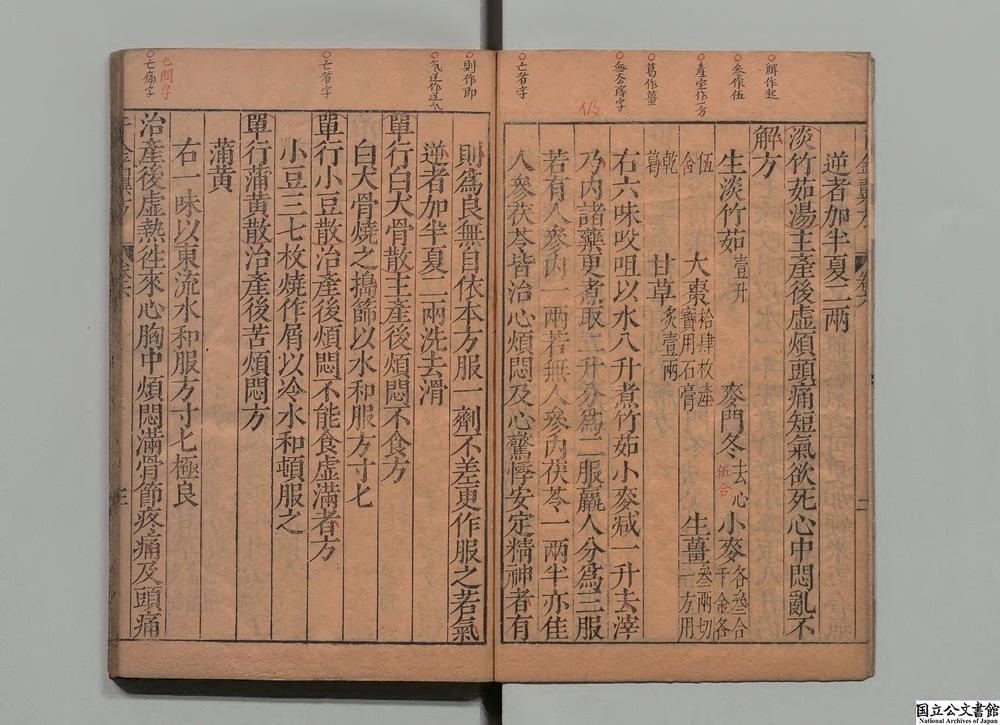 解作起
叁作伍
產室作一方
葛作薑
亡者字
仍
逆者加半夏二兩
淡竹茹湯主產後虛煩頭痛短氣欲死心中悶亂不
解方
生淡竹茹壹升 麥門冬去心伍合 小麥各叁合千金各
伍合 大棗拾肆枚產寶用石膏 生薑叁兩切一方用
乾葛 甘草炙壹兩
右六味㕮咀以水八升煮竹茹小麥減一升去滓
乃內諸藥更煮取二升分為二服羸人分為三服
若有人參內一兩若無人參內茯苓一兩半亦佳
人參茯苓皆治心煩悶及心驚悸安定精神者有
則作即
亡者字
亡悶字
亡痛字
則為良無自依本方服一劑不差更作服之若氣
逆者加半夏二兩洗去滑
單行白犬骨散主產後煩悶不食方
白犬骨燒之搗篩以水和服方寸匕
單行小豆散治產後煩悶不能食虛滿者方
小豆三七枚燒作屑以冷水和頓服之
單行蒲黃散治產後苦煩悶方
蒲黃
右一味以東流水和服方寸匕極良
治產後虛熱往來心胸中煩悶滿骨節疼痛及頭痛
国立公文書館
National Archives of Japan